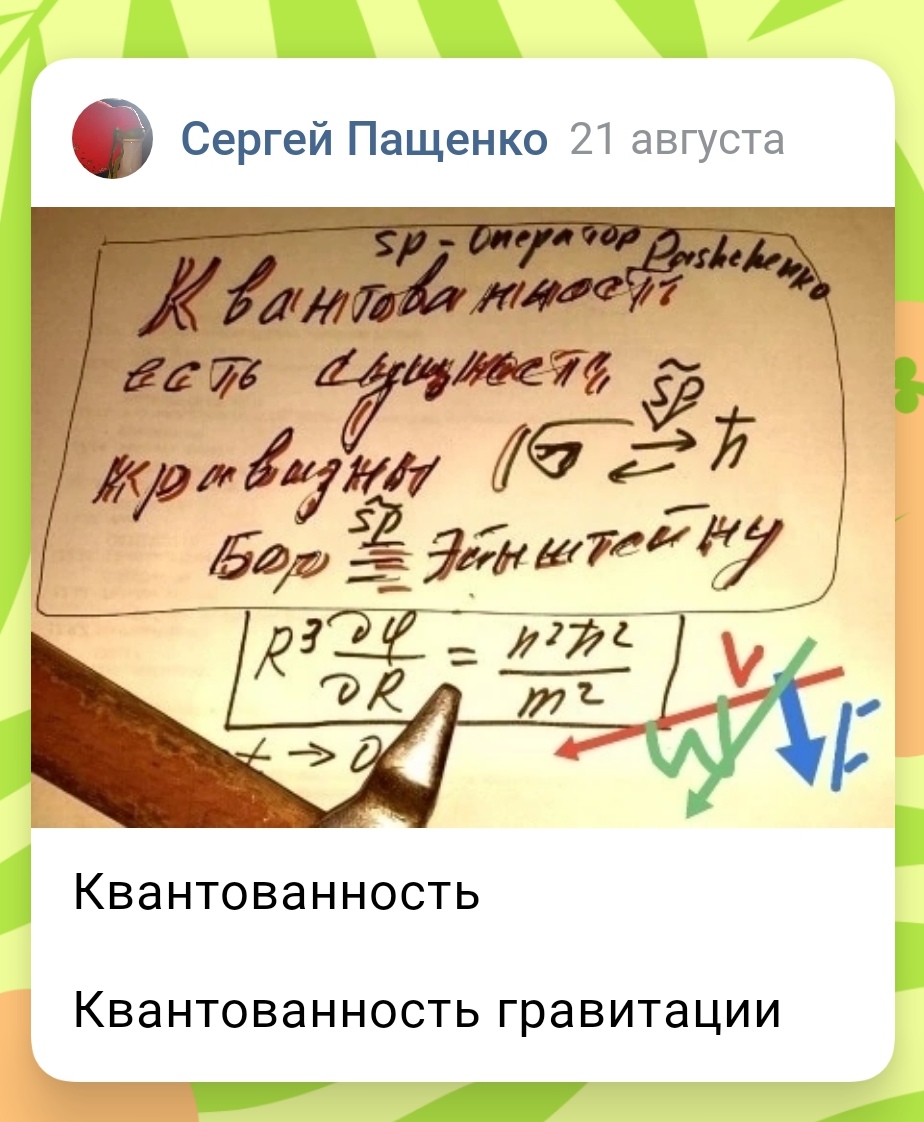 Сергей Пащенко 21 августа
sp - Оператор Pashchenko
Квантованность
есть сущность
кривизны G s̃p ⇄ ħ
Бор s̃p ≡ Эйнштейну
R³ ∂φ/∂R = n²ħ²/m²
t → 0
V
W
E
Квантованность
Квантованность гравитации